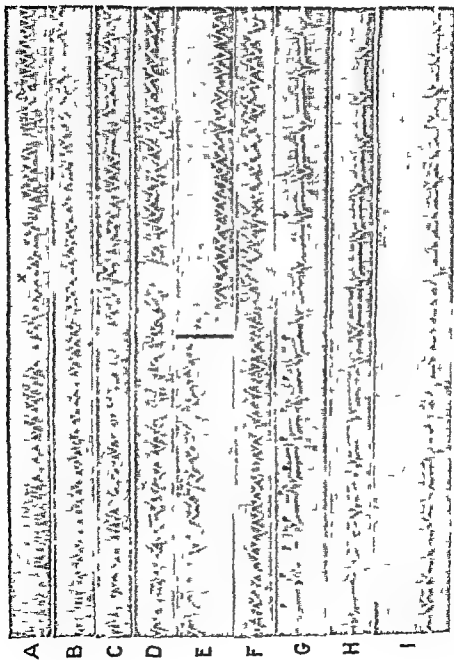 A
x
B
C
D
E
F
G
H
I